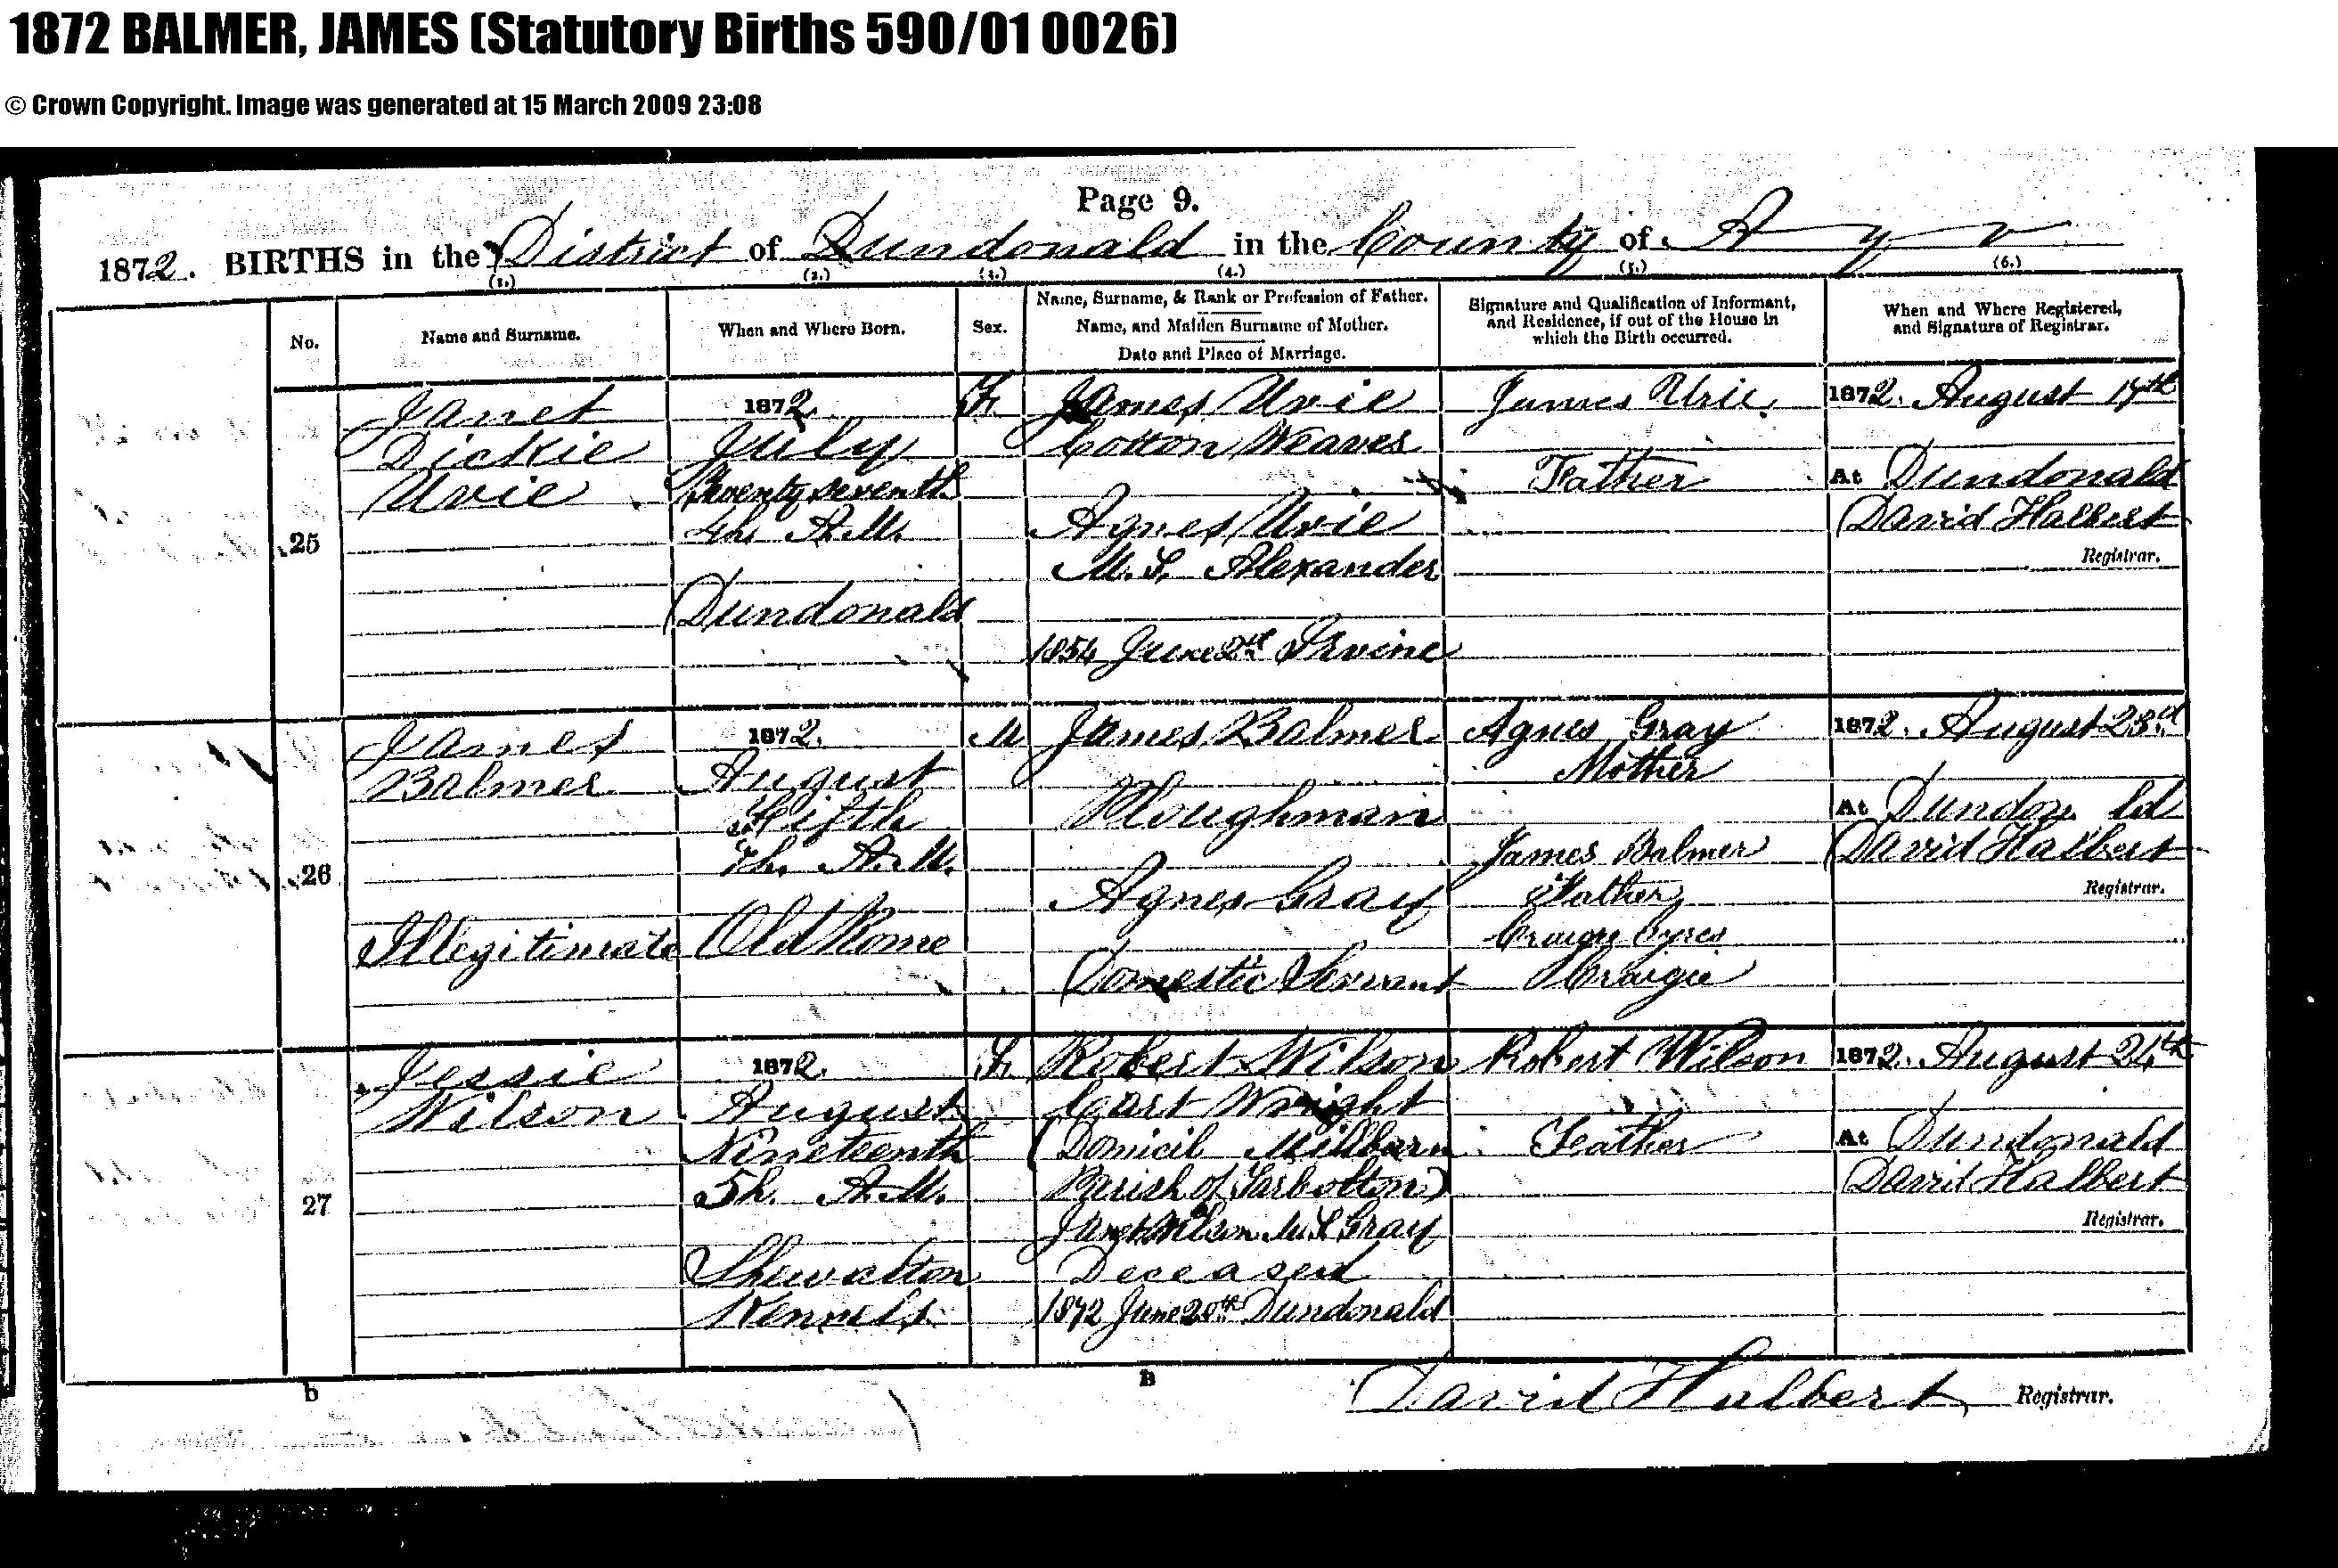 1872 BALMER, JAMES (Statutory Births 590/01 0026)
© Crown Copyright. Image was generated at 15 March 2009 23:08
Page 9.
1872. BIRTHS in the District of Dundonald in the County of Ayr
(1.) (2.) (3.) (4.) (5.) (6.)
No.
Name and Surname.
When and Where Born.
Sex.
Name, Surname, & Rank or Profession of Father.
Name, and Maiden Surname of Mother.
Date and Place of Marriage.
Signature and Qualification of Informant,
and Residence, if out of the House in
which the Birth occurred.
When and Where Registered,
and Signature of Registrar.
25
Janet
Dickie
Urie
1872.
July
Twenty seventh
4h. A.M.
Dundonald
F.
James Urie
Cotton Weaver
Agnes Urie
M.S. Alexander
1854 June Irvine
James Urie
Father
1872. August 17th
At Dundonald
David Halbert
Registrar.
26
James
Balmer
Illegitimate
1872.
August
Fifth
7h. A.M.
Old Rome
M
James Balmer
Ploughman
Agnes Gray
Domestic Servant
Agnes Gray
Mother
James Balmer
Father
Craigie
Craigie
1872. August 23rd
At Dundon ld
David Halbert
Registrar.
27
Jessie
Wilson
1872.
August
Nineteenth
5h. A.M.
Shewalton
Kennels
F.
Robert Wilson
Cart Wright
(Domicil Millburn
Parish of Tarbolton)
Janet Wilson M.S. Gray
Deceased
1872 June 20th Dundonald
Robert Wilson
Father
1872. August 24th
At Dundonald
David Halbert
Registrar.
b
B
David Halbert Registrar.